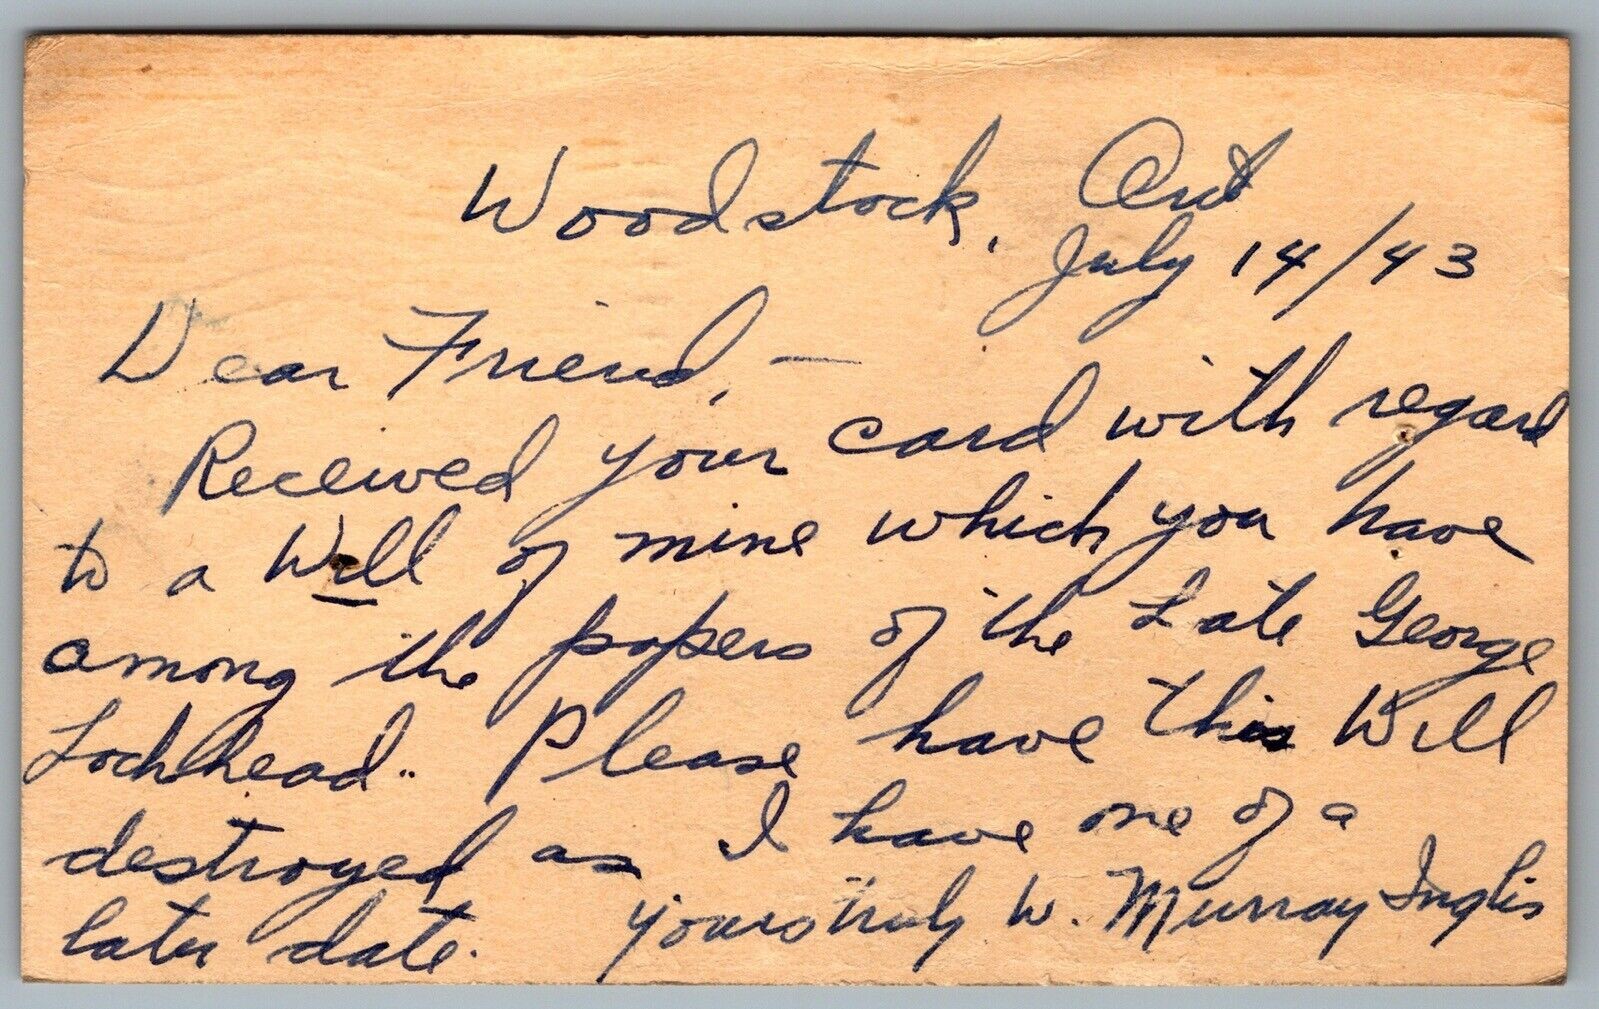 Woodstock, Ont
July 14/43
Dear Friend, —
Received your card with regard
to a Will of mine which you have
among the papers of the Late George
Lochhead.. Please have this Will
destroyed as I have one of a
later date. Yours truly W. Murray Inglis